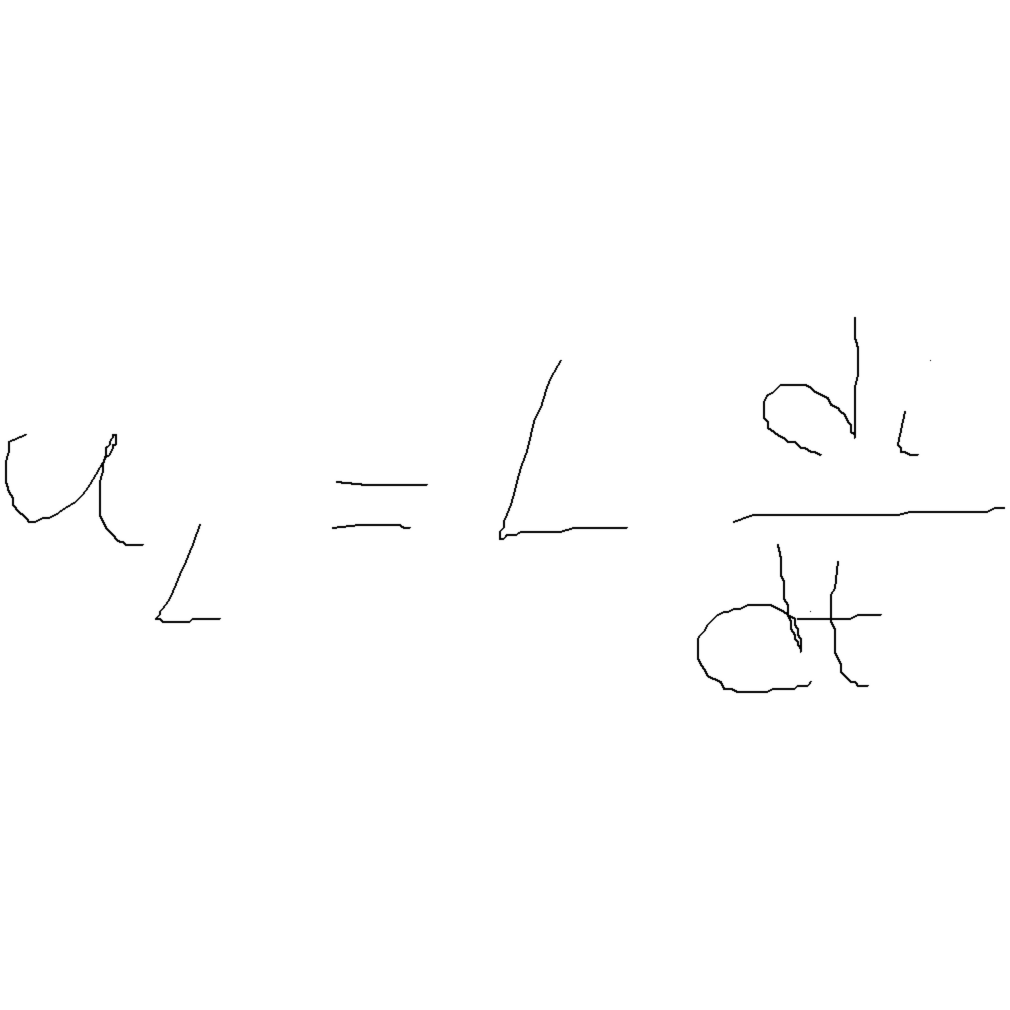 u_L = L \frac{di}{dt}